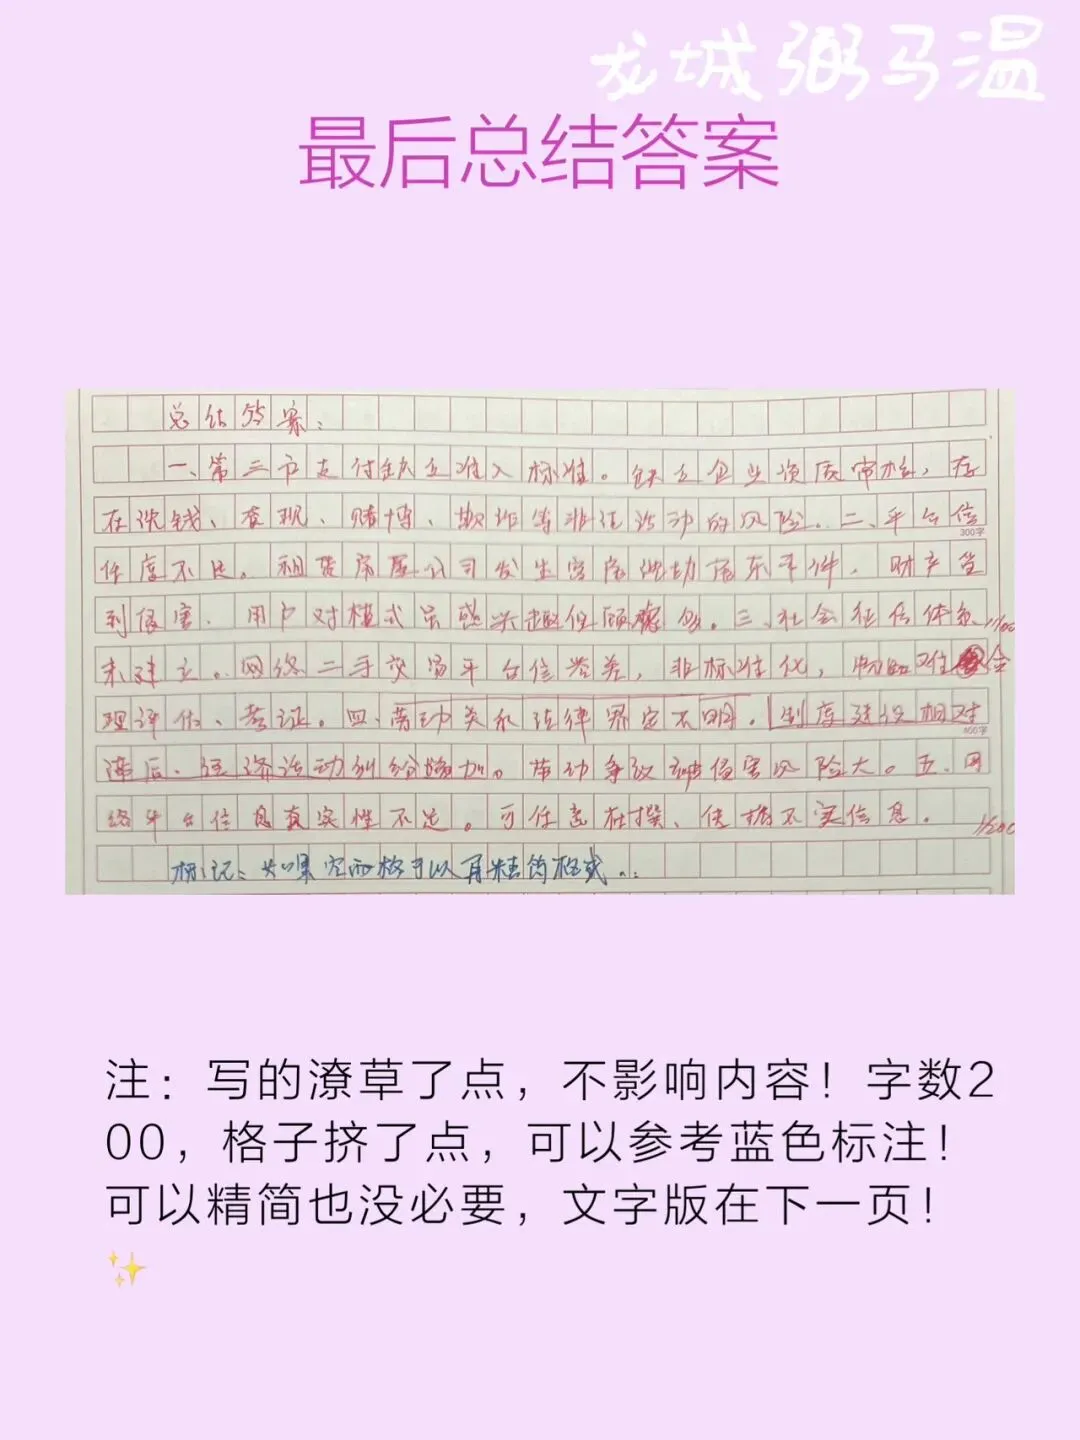 龙城弼马温
最后总结答案
总结答案：
一、第三方支付缺乏准入标准。缺乏企业资质审核，存
在洗钱、套现、赌博、欺诈等非法活动的风险。二、平台信
任度不足。租赁房屋公司发生客房被动房东事件，财产受
到侵害，用户对模式虽感兴趣但顾虑多。三、社会征信体系
未建立。网络二手交易平台信誉差，非标准化，物品难合
理评估、考证。四、劳动关系法律界定不明。制度建设相对
滞后，经济活动纠纷增加。劳动争议被侵害风险大。五、网
络平台信息真实性不足。可任意杜撰、使据不实信息。
标记：如果空两格可以再精简格式
300字
400字
1/100
1/200
注：写的潦草了点，不影响内容！字数2
00，格子挤了点，可以参考蓝色标注！
可以精简也没必要，文字版在下一页！
✨